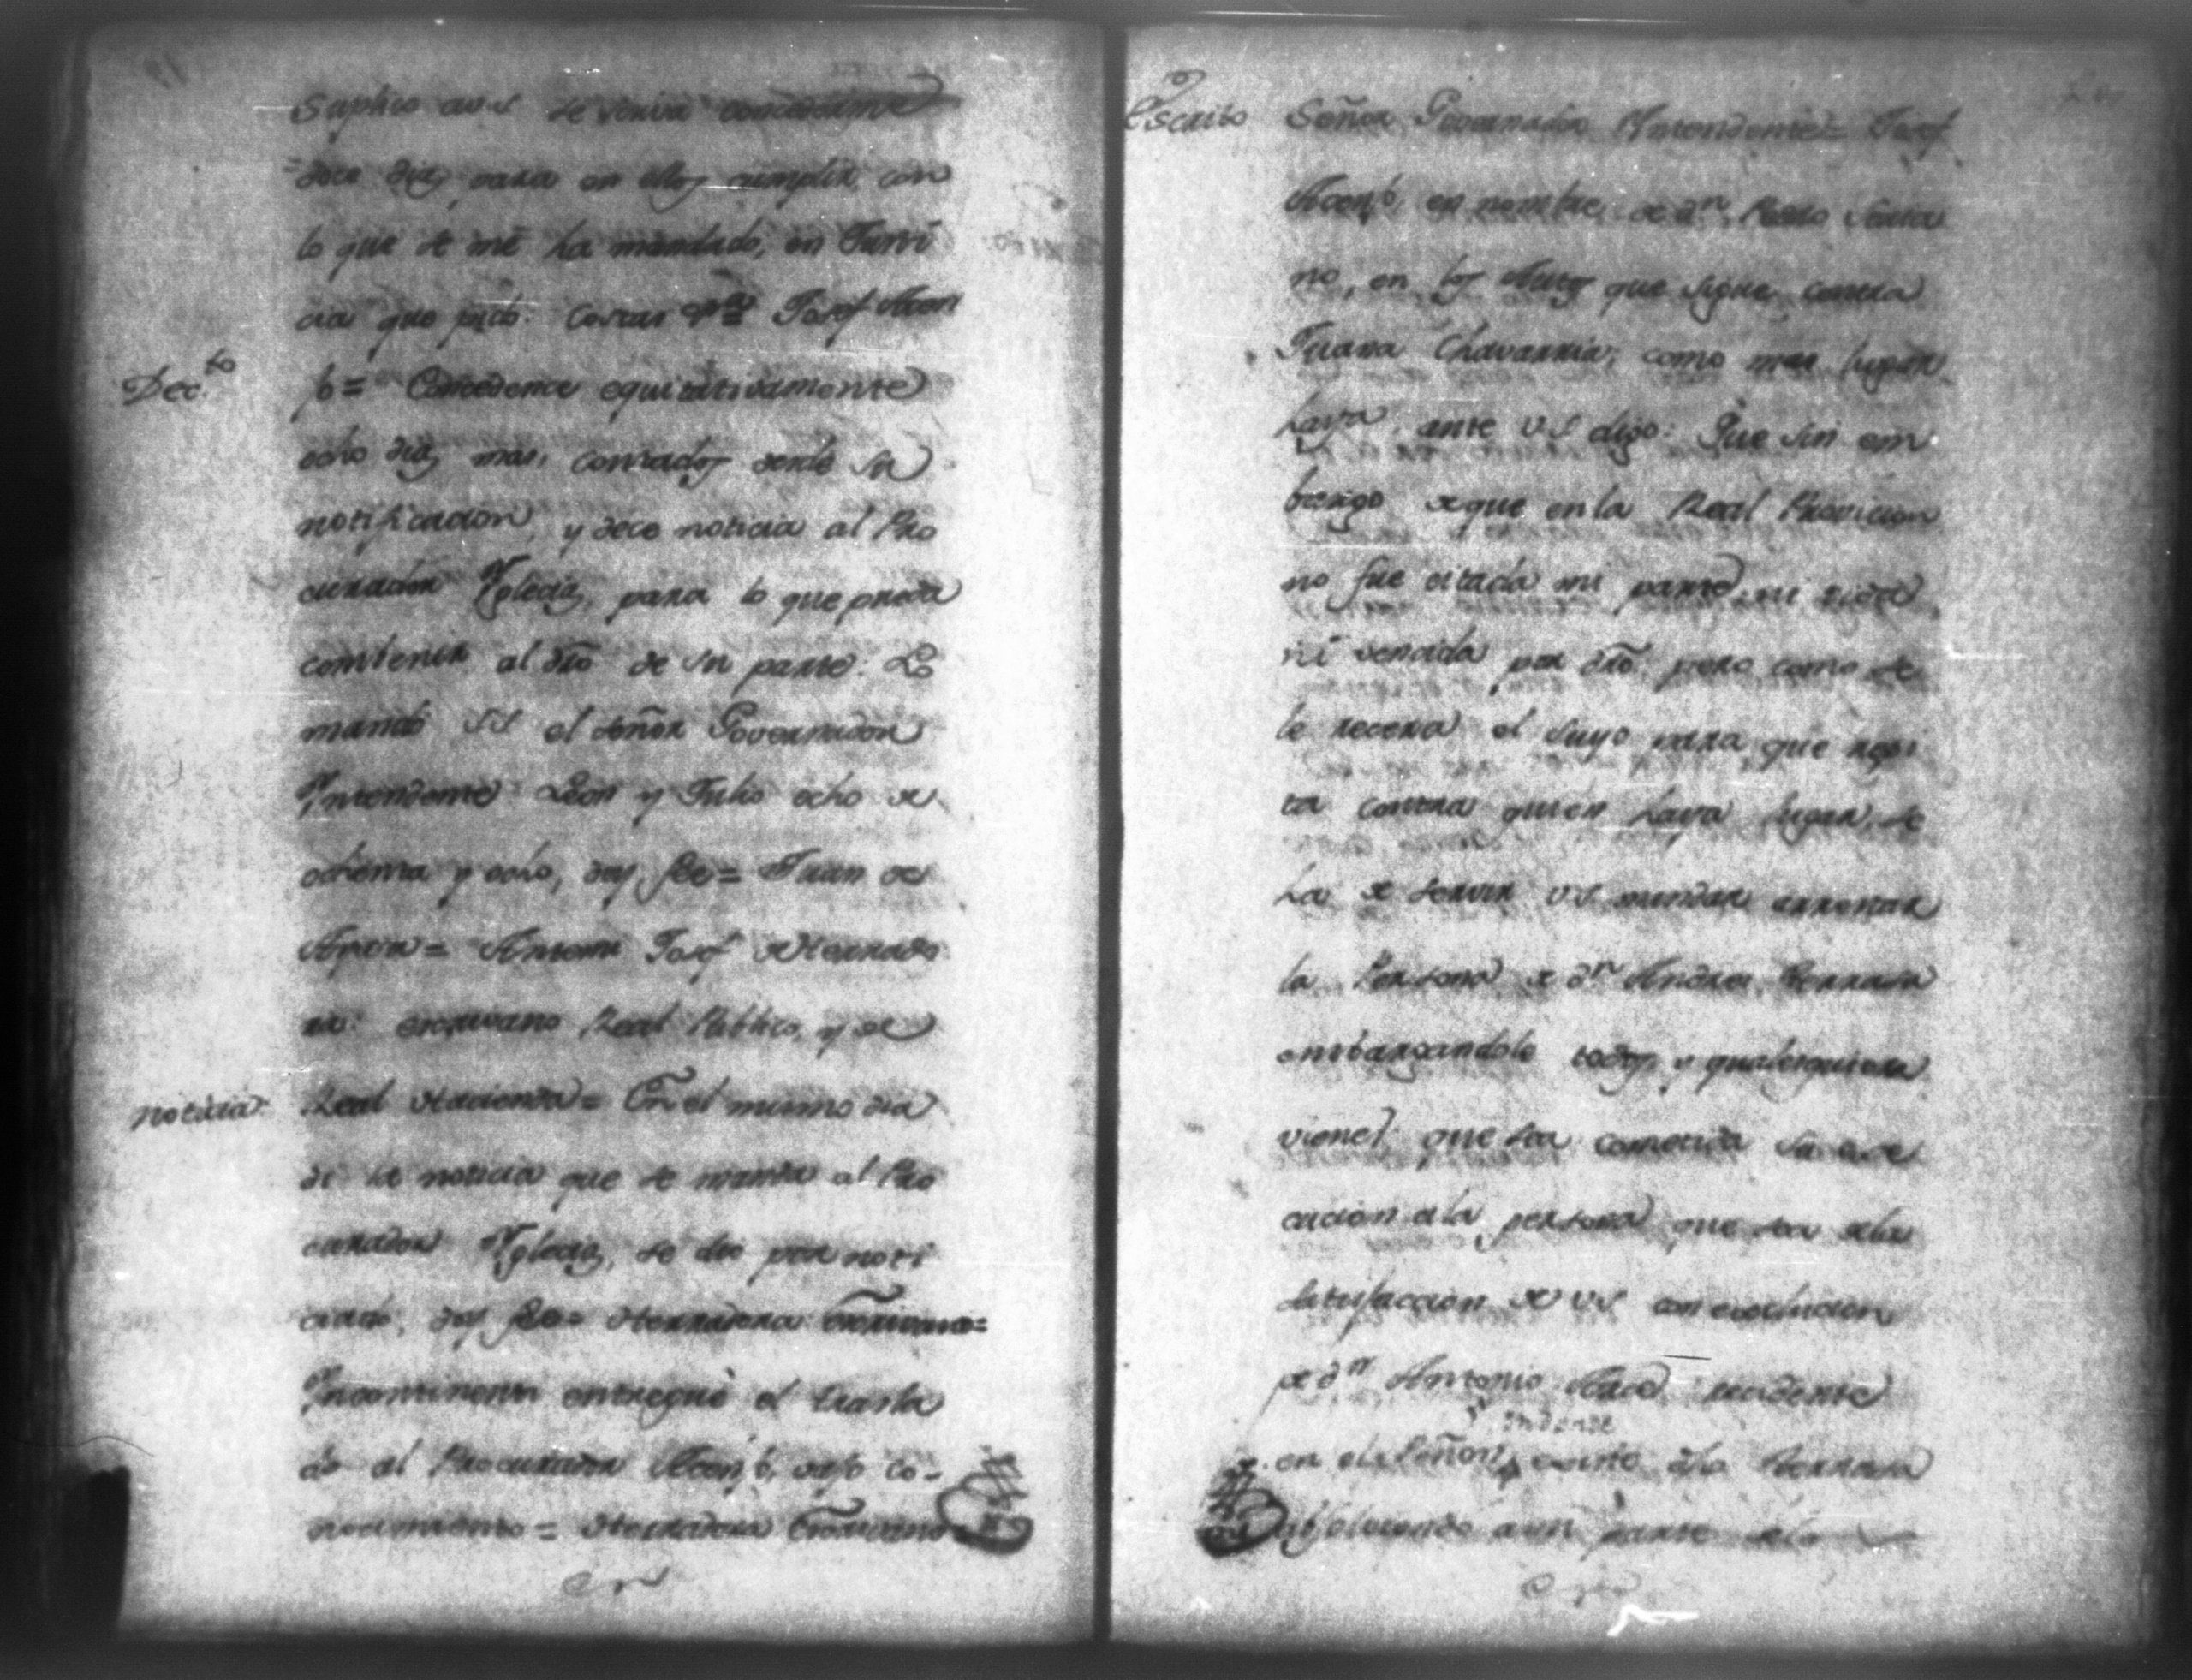 Suplico a V.S. se sirva concederme
doce dias para en ellos cumplir con
lo que se me ha mandado, en Justi
cia que pido. Costas &ra Josef Ascen
Dec.to
so = Concedense equitativamente
ocho dias mas, contados desde su
notificacion, y dese noticia al Pro
curador Yglecias, para lo que pueda
combenir al dro de su parte. Lo
mandó SS el señor Governador
Yntendente Leon y Julio ocho de
ochenta y ocho, doy fee = Juan de
Aysa = Antonio Josef de Herrado
ra. escrivano Real Publico, y de
noticia
Real Hacienda = En el mismo dia
di la noticia que se manda al Pro
curador Yglecias, se dio por noti
ciado, doy fee = Herradora Escrivano =
Yncontinenti entregué el trasla
do al Procurador Ascenso, vajo co-
nocimiento = Herradora Escrivano
En
Escrito
Señor Governador Yntendente = Josef
Ascenso, en nombre de dn Pedro Solta
no, en los Autos que sigue contra
Juana Chavarria, como mas lugar
haya, ante VS digo: Que sin em
bargo de que en la Real Provicion
no fue citada mi parte, ni oida
ni vencida por dro. pero como se
le recerva el suyo para que repi
ta contra quien haya lugar, se
ha de servir VS mandar arrestar
la Persona de dn Andres Terrasa
embargandole todos y qualesquiera
vienes, que sea cometida su exe
cucion a la persona que sea de la
satisfaccion de VS con exclucion
de dn Antonio recidente
en el Señor dho Terrasa
absolviendo a mi parte de la